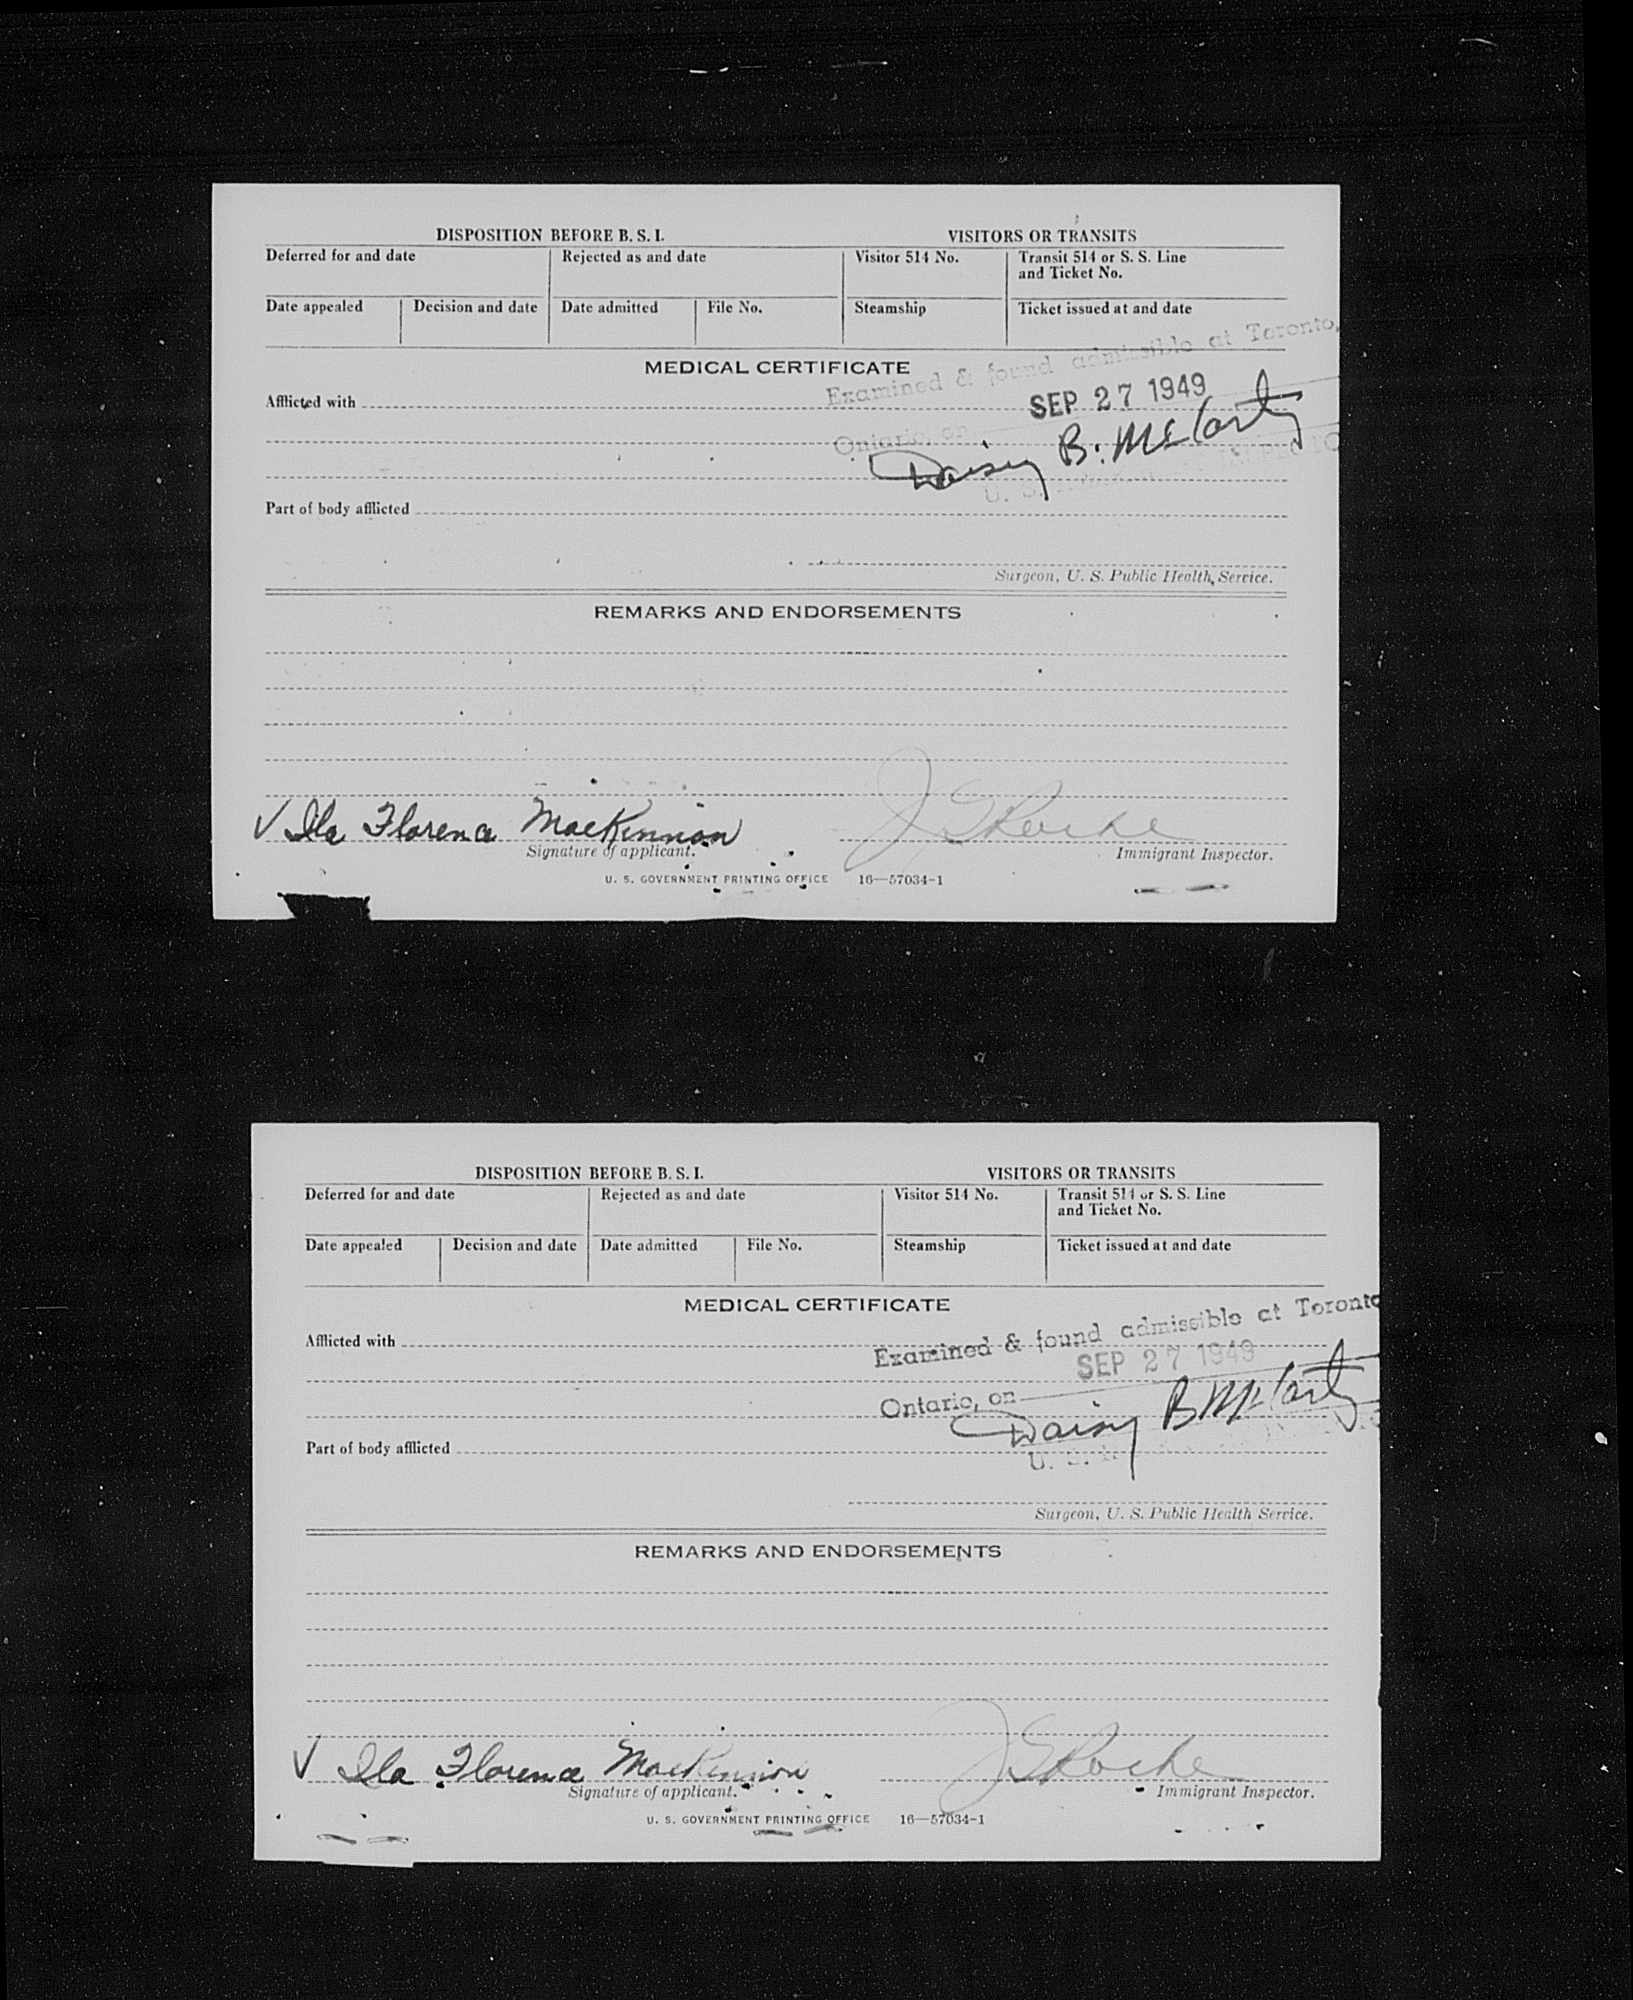 DISPOSITION BEFORE B. S. I. VISITORS OR TRANSITS
Deferred for and date Rejected as and date Visitor 514 No. Transit 514 or S. S. Line
and Ticket No.
Date appealed Decision and date Date admitted File No. Steamship Ticket issued at and date
MEDICAL CERTIFICATE
Examined & found admissible at Toronto,
Afflicted with
SEP 27 1949
Ontario, on
Daisy B. McCarty
U. S.
Part of body afflicted
Surgeon, U. S. Public Health Service.
REMARKS AND ENDORSEMENTS
✓ Ila Florence MacKinnon J S Roche
Signature of applicant. Immigrant Inspector.
U. S. GOVERNMENT PRINTING OFFICE 16—57034-1
DISPOSITION BEFORE B. S. I. VISITORS OR TRANSITS
Deferred for and date Rejected as and date Visitor 514 No. Transit 514 or S. S. Line
and Ticket No.
Date appealed Decision and date Date admitted File No. Steamship Ticket issued at and date
MEDICAL CERTIFICATE
Examined & found admissible at Toronto
Afflicted with
SEP 27 1949
Ontario, on
Daisy B McCarty
U. S.
Part of body afflicted
Surgeon, U. S. Public Health Service.
REMARKS AND ENDORSEMENTS
✓ Ila Florence MacKinnon J S Roche
Signature of applicant. Immigrant Inspector.
U. S. GOVERNMENT PRINTING OFFICE 16—57034-1